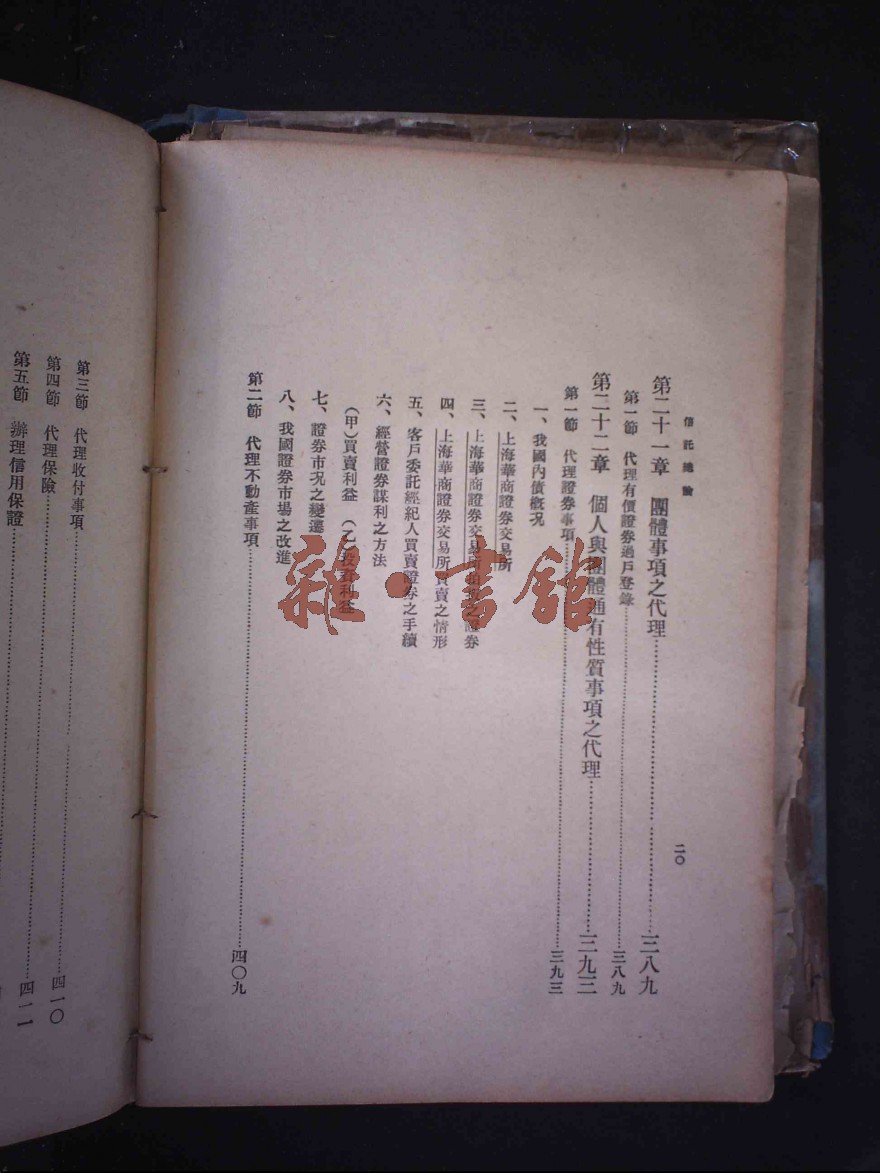 信託總論
二〇
第二十一章 團體事項之代理……三八九
第一節 代理有價證券過戶登錄……三八九
第二十二章 個人與團體通有性質事項之代理……三九三
第一節 代理證券事項……三九三
一、我國內債概況
二、上海華商證券交易所
三、上海華商證券交易所拍板之證券
四、上海華商證券交易所買賣之情形
五、客戶委託經紀人買賣證券之手續
六、經營證券謀利之方法
(甲)買賣利益 (乙)投資利益
七、證券市況之變遷
八、我國證券市場之改進
第二節 代理不動產事項……四〇九
第三節 代理收付事項
第四節 代理保險……四一〇
第五節 辦理信用保證……四一一
雜·書館